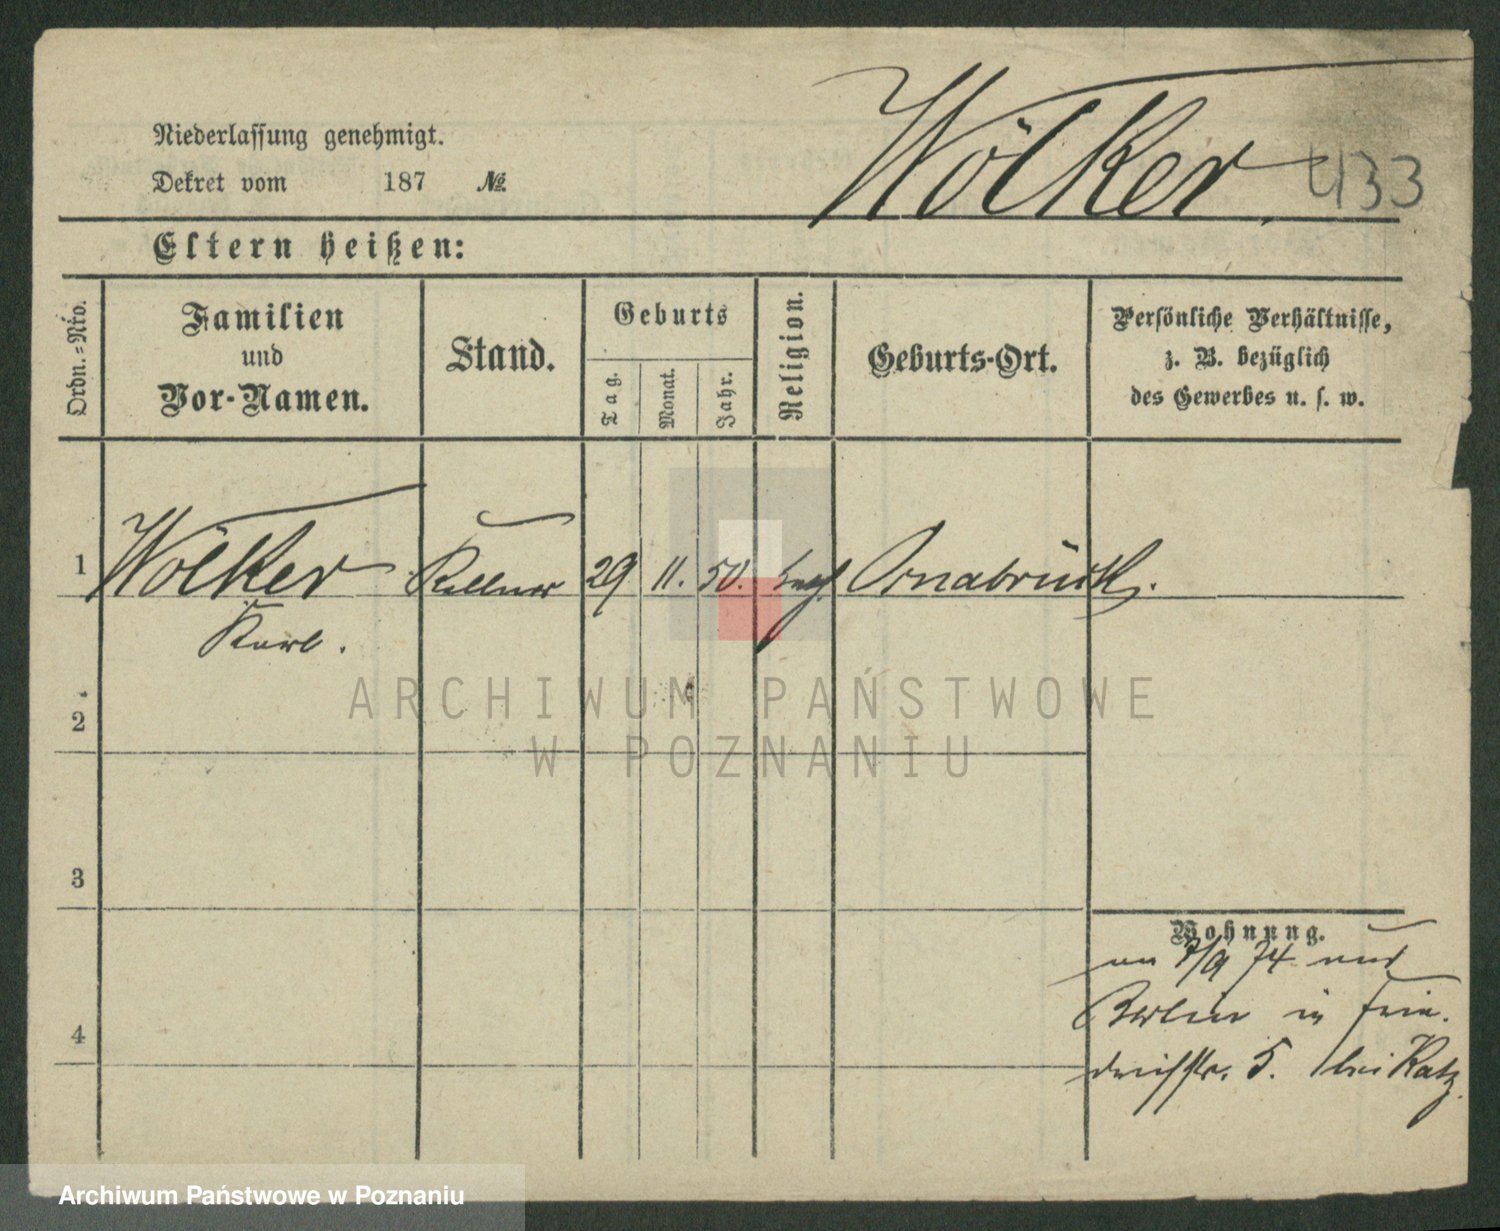 Wölker
433
Niederlassung genehmigt.
Dekret vom 187 №
Eltern heißen:
Ordn.=Nro.
Familien
und
Vor-Namen.
Stand.
Geburts
Tag.
Monat.
Jahr.
Religion.
Geburts-Ort.
Persönliche Verhältnisse,
z. B. bezüglich
des Gewerbes u. s. w.
1 Wölker Kellner 29 11. 50. Osnabrück.
Karl.
ARCHIWUM PAŃSTWOWE
2
W POZNANIU
3
Wohnung.
/9 74 aus
Berlin in Frie-
4
drichstr. 5. bei Katz.
Archiwum Państwowe w Poznaniu